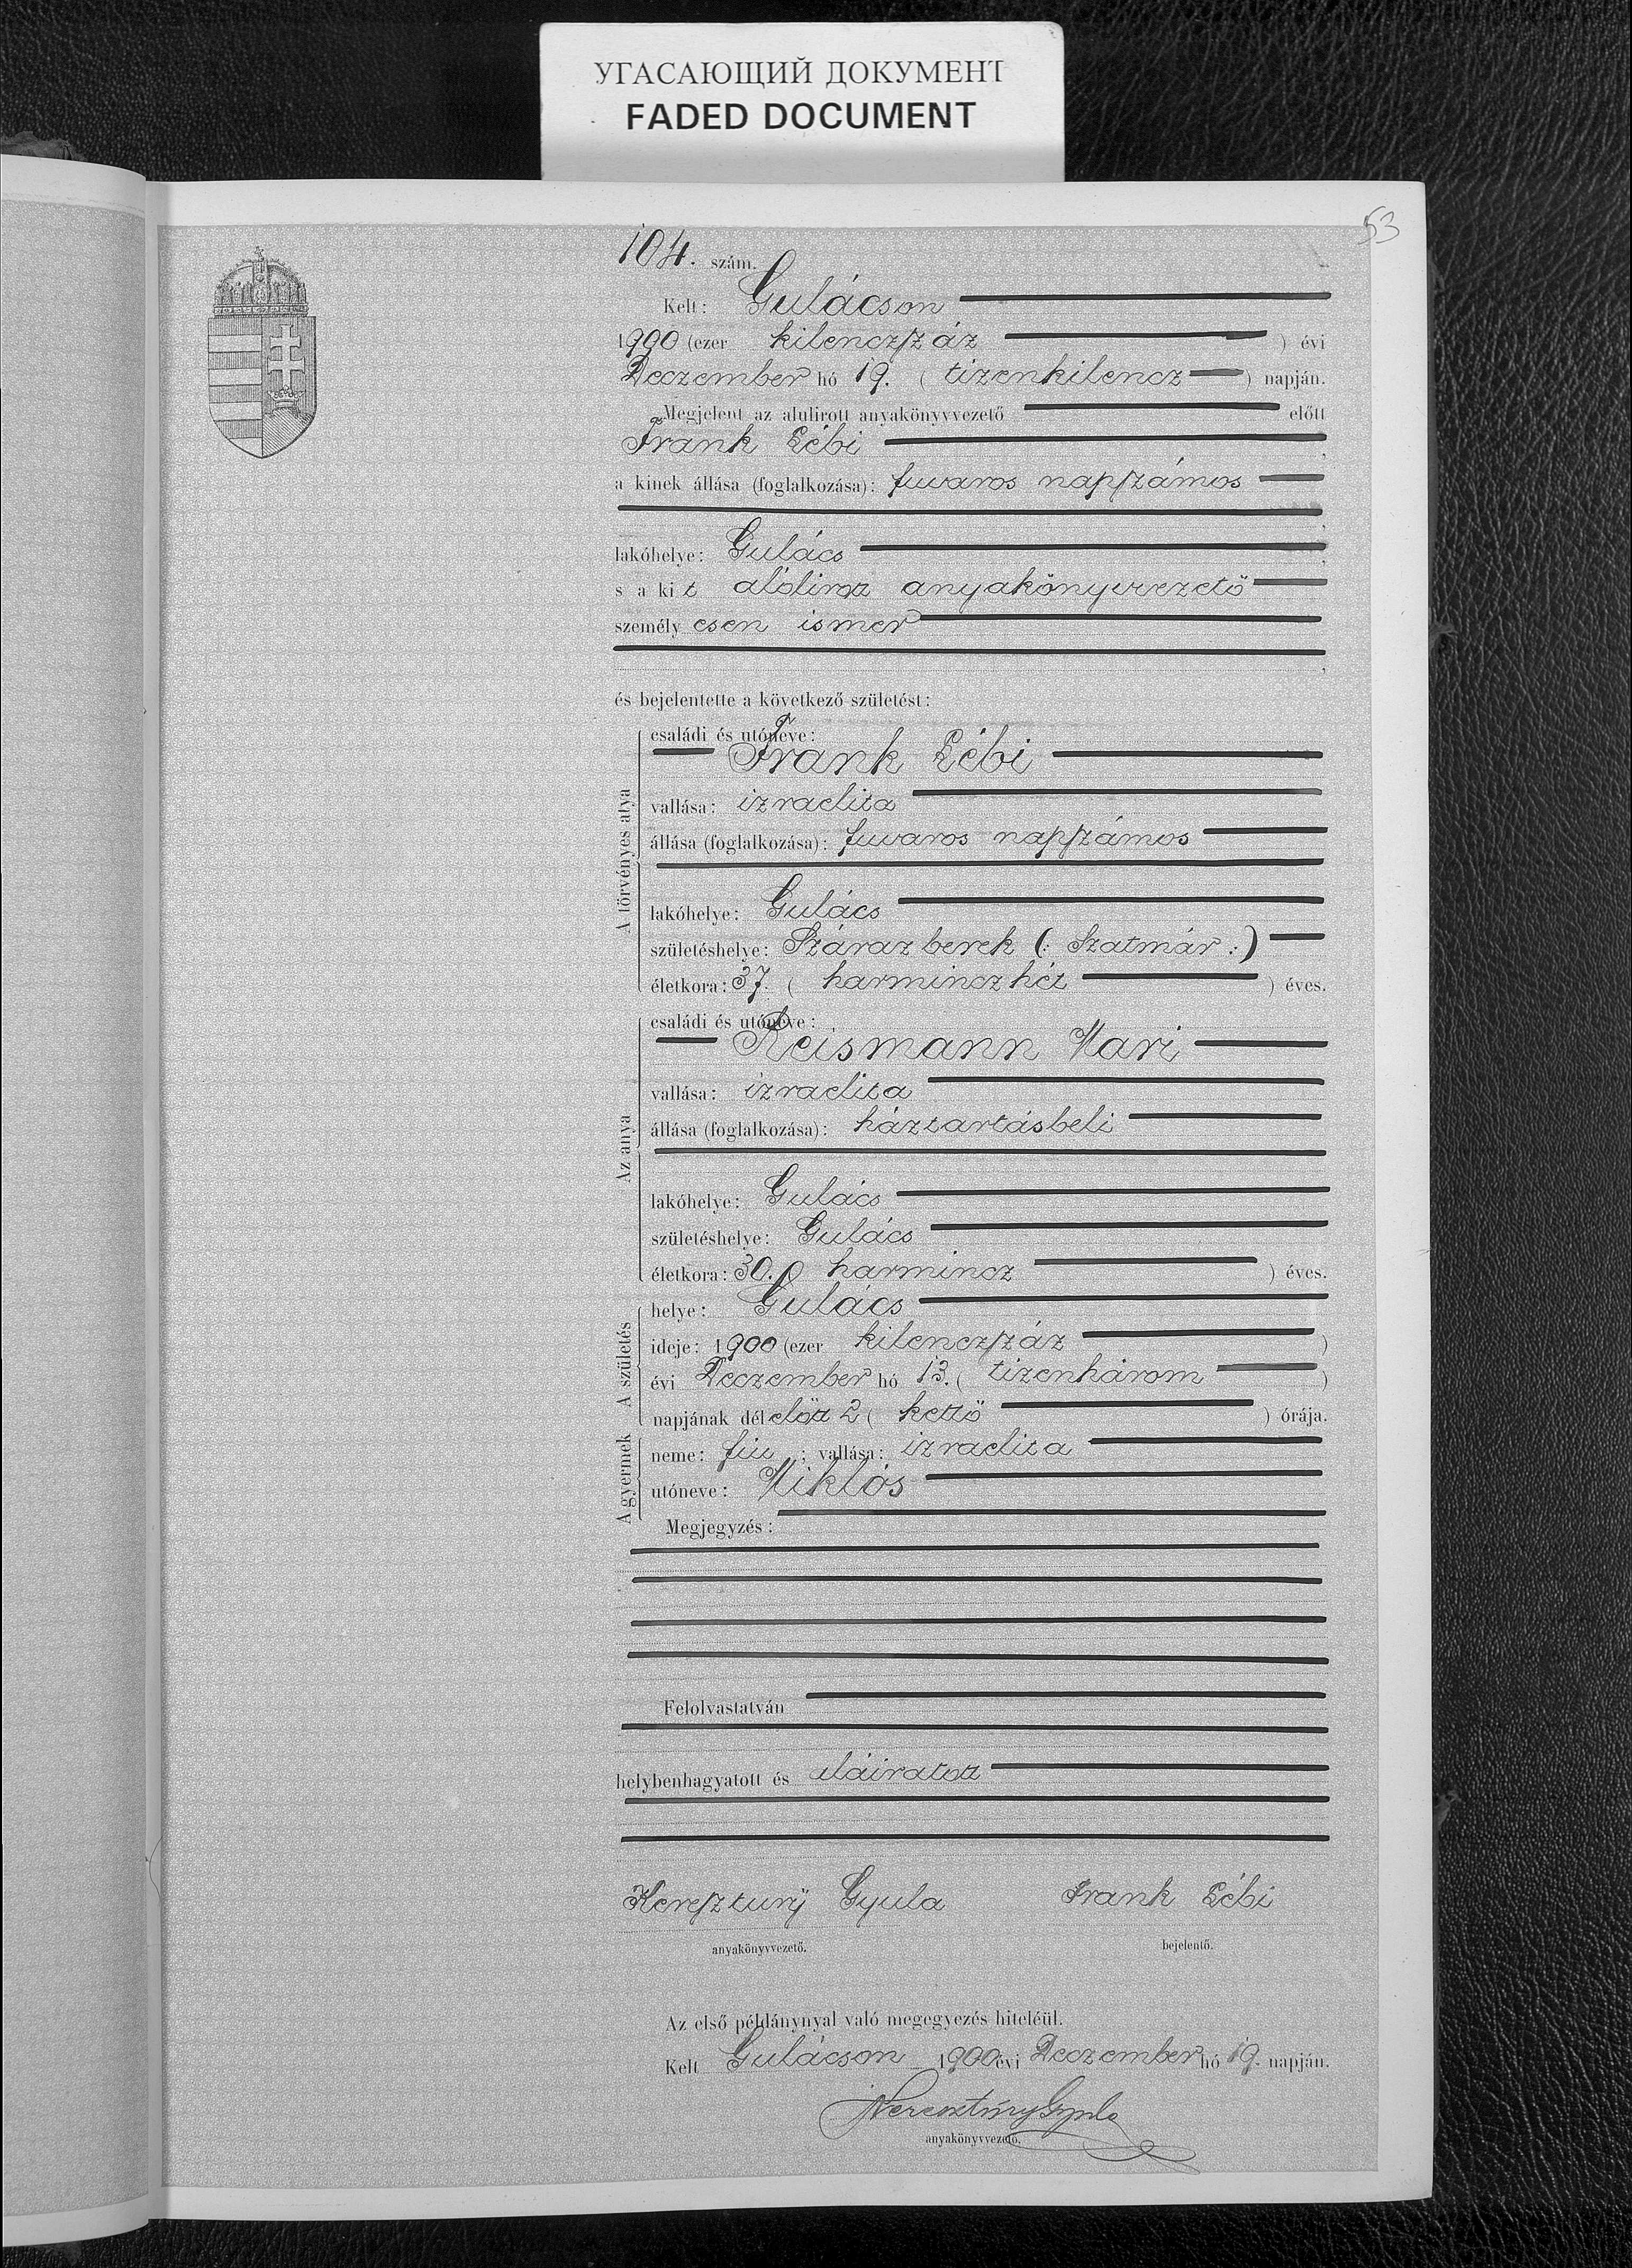 УГАСАЮЩИЙ ДОКУМЕНТ
FADED DOCUMENT
53
104. szám.
Kelt: Gulácson
1900 (ezer kilenczszáz ) évi
Deczember hó 19. ( tizenkilencz ) napján.
Megjelent az alulirott anyakönyvvezető előtt
Frank Lébi
a kinek állása (foglalkozása): fuvaros napszámos
lakóhelye: Gulács
s a kit alólirott anyakönyvvezető
személyesen ismer
és bejelentette a következő születést:
A törvényes atya
családi és utóneve:
Frank Lébi
vallása: izraelita
állása (foglalkozása): fuvaros napszámos
lakóhelye: Gulács
születéshelye: Szárazberek (: Szatmár :)
életkora: 37. ( harminczhét ) éves.
Az anya
családi és utóneve:
Reismann Mari
vallása: izraelita
állása (foglalkozása): háztartásbeli
lakóhelye: Gulács
születéshelye: Gulács
életkora: 30. ( harmincz ) éves.
A születés
helye: Gulács
ideje: 1900 (ezer kilenczszáz )
évi Deczember hó 13. ( tizenhárom )
napjának délelőtt 2 ( kettő ) órája.
A gyermek
neme: fiu ; vallása: izraelita
utóneve: Miklós
Megjegyzés:
Felolvastatván
helybenhagyatott és aláiratott
Keresztury Gyula Frank Lébi
anyakönyvvezető. bejelentő.
Az első példánynyal való megegyezés hiteléül.
Kelt Gulácson 1900 évi Deczember hó 19. napján.
Keresztury Gyula
anyakönyvvezető.